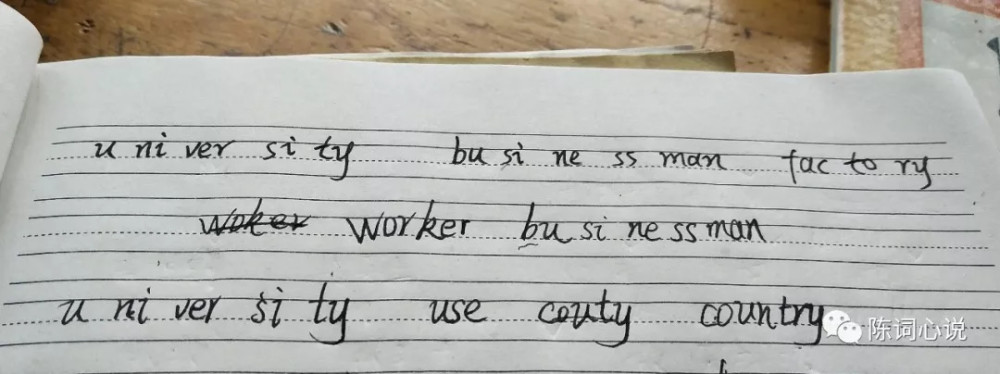 u ni ver si ty bu si ne ss man fac to ry
woker worker bu si ne ss man
u ni ver si ty use couty country
陈词心说